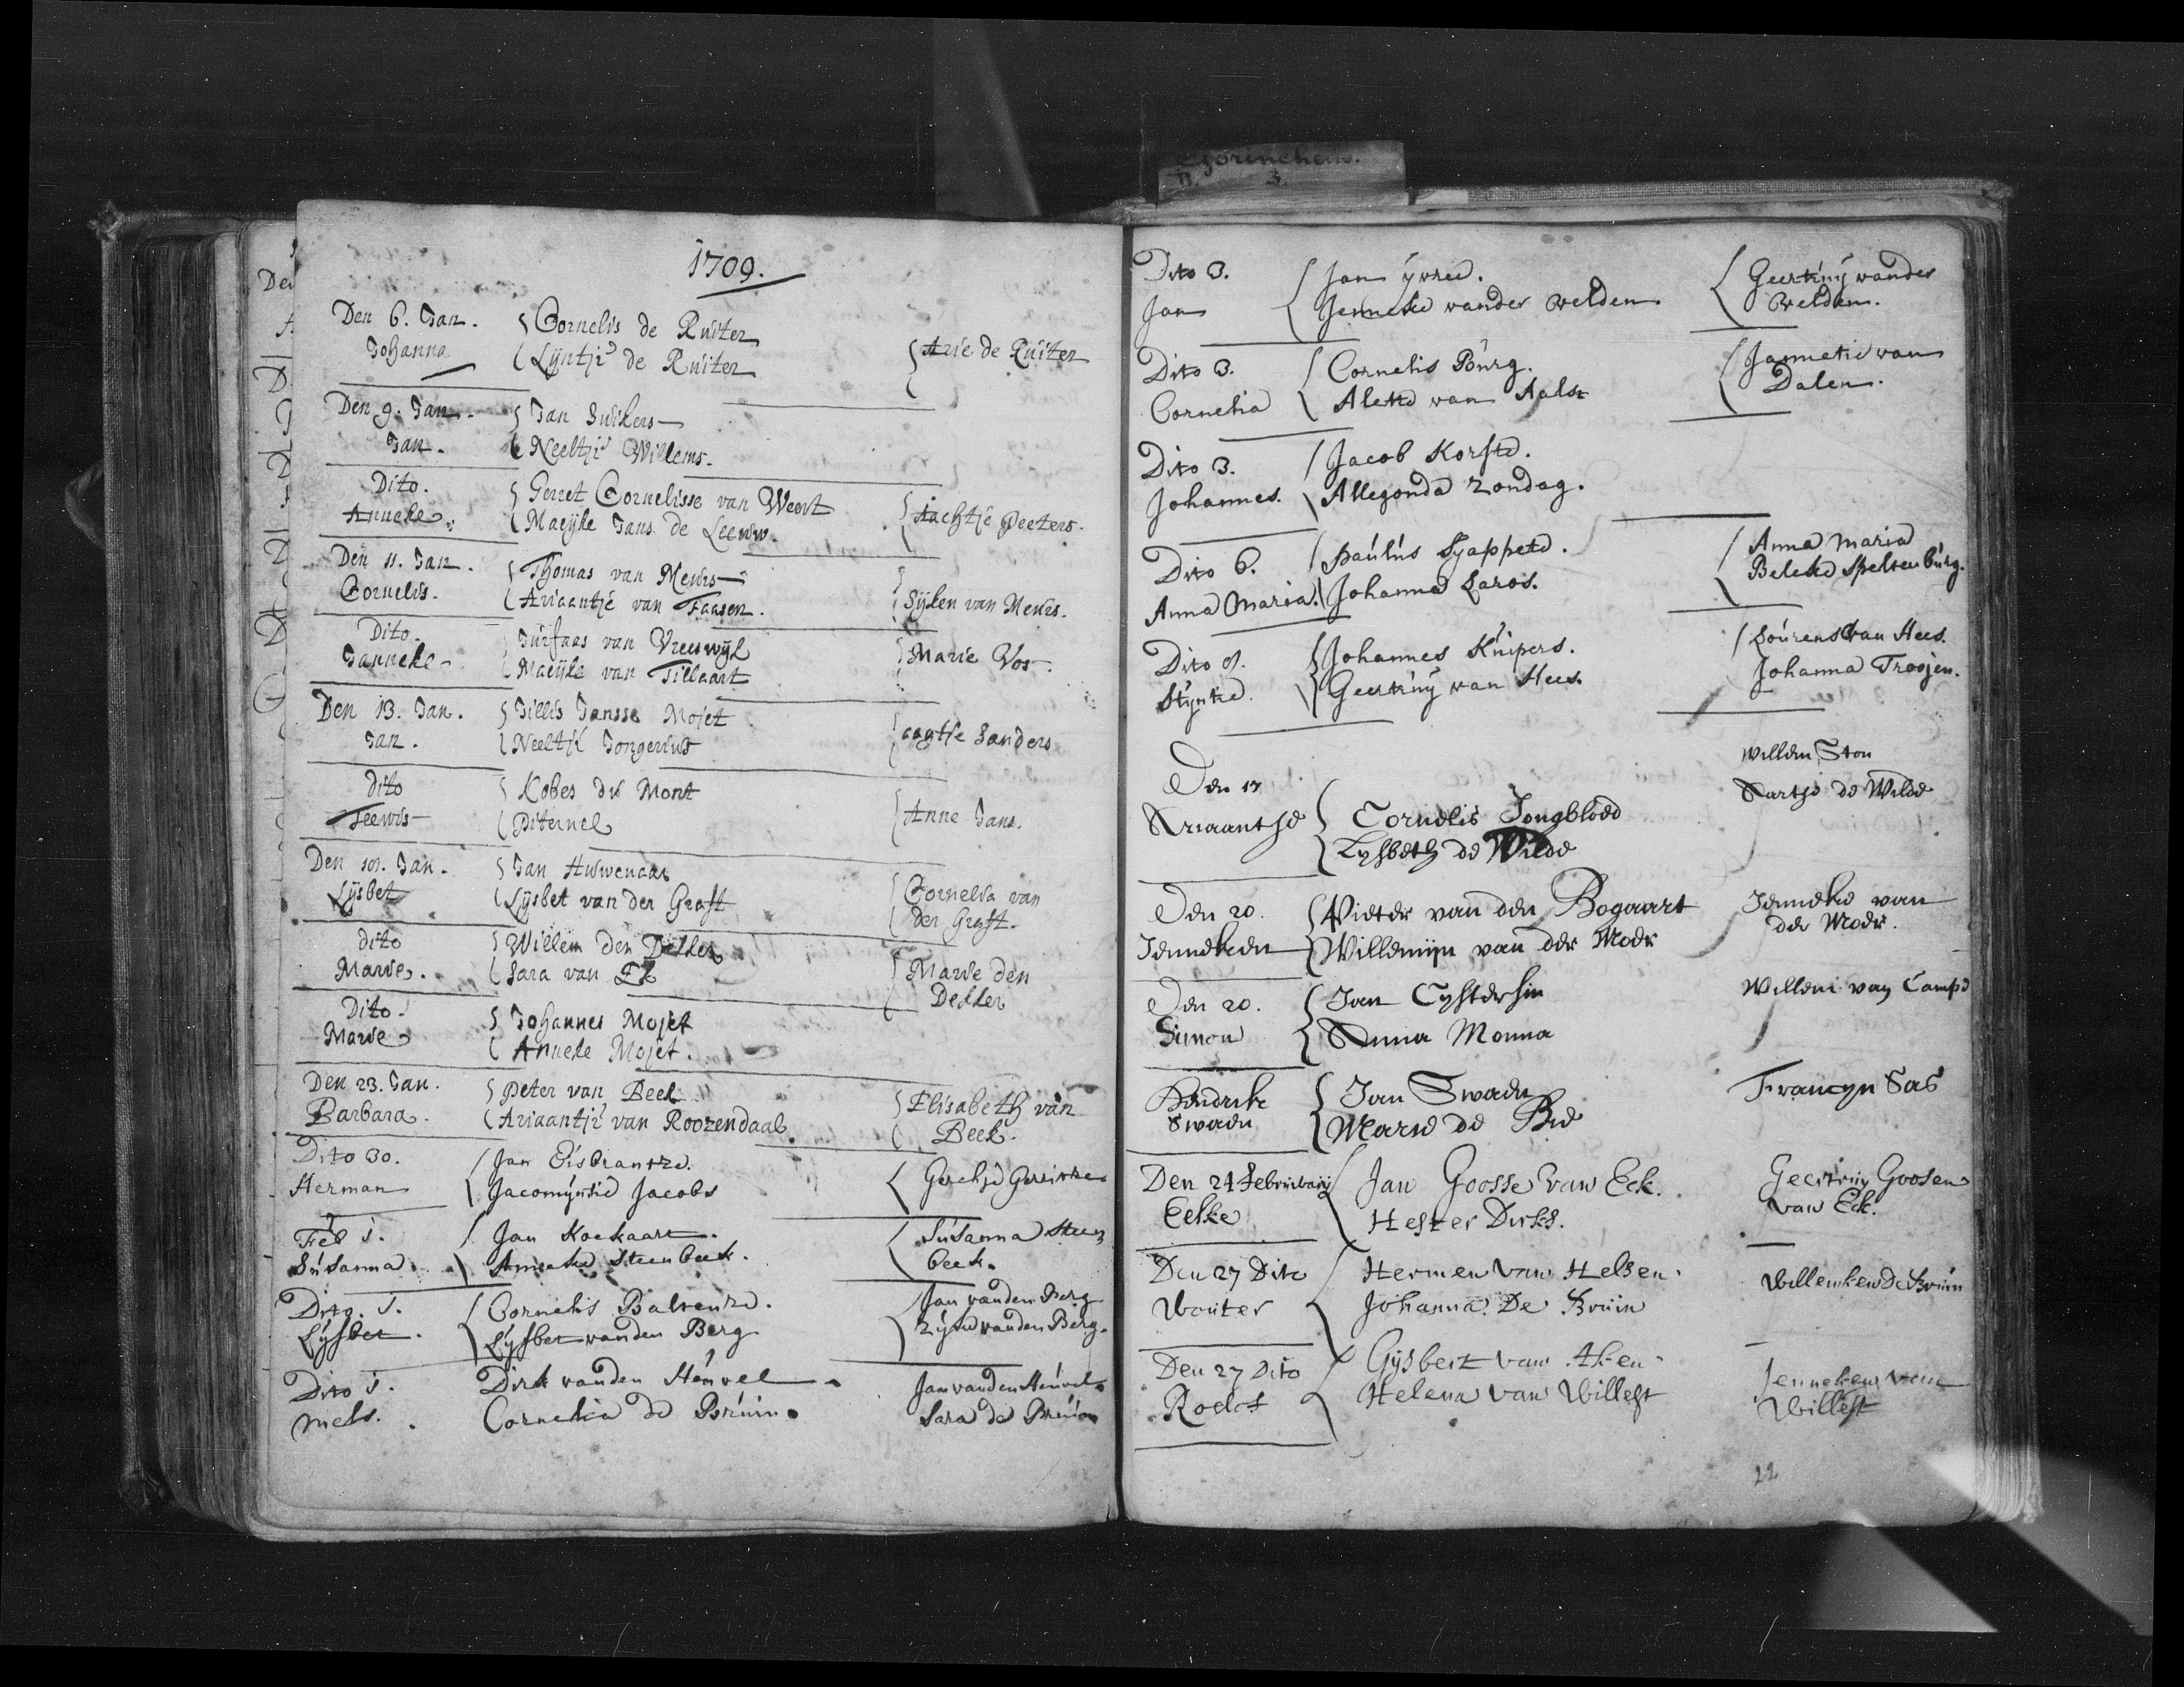 Gorinchem.
11. 3.
1709.
Den 6. Jan. Cornelis de Ruiter
Johanna Lijntje de Ruiter Arie de Ruiter
Den 9. Jan. Jan Suikers
Jan. Neeltje Willems.
Dito. Gerret Cornelisse van Weert
Anneke. Maeijke Jans de Leeuw. Aachtje Peeters.
Den 11. Jan. Thomas van Meurs
Cornelis. Ariaantje van Faasen. Sijken van Meurs.
Dito. Jurfaas van Vreeswijk
Janneke Maeijke van Tillaart Marie Vos.
Den 13. Jan. Jillis Jansse Mojet
Jan. Neeltje Jongerius aagtje Sanders
dito Kobes du Mont
Teewis Piternel Anne Jans.
Den Jan. Jan
Lijsbet Lijsbet van der Graft Cornelia van
der Graft.
dito Willem den Dekker
Marie. Sara van Ek Marie den
Dekker
Dito Johannes Mojet
Marie Anneke Mojet.
Den 23. Jan. Peter van Beek
Barbara. Ariaantje van Roozendaal Elisabeth van
Beek.
Dito 30. Jan
Herman Jacomijntie Jacobs
Feb 1. Jan Koekaart. Susanna Steen
Susanna. Anneke Steenbeek. beek.
Dito. 1. Cornelis Jan vanden Berg
Lijsbet. Lijsbet vanden Berg vanden Berg.
Dito 1. Dirk vanden Heuvel Jan vanden Heuvel
Mels. Cornelia de Bruin. Sara de Bruin
Dito 3. Jan Geertruij vander
Jan Jenneke vander Velden Velden.
Dito 3. Cornelis Burg. Jannetie van
Cornelia Alette van Aalst Dalen.
Dito 3. Jacob Korste.
Johannes. Allegonda Zondag.
Dito 6. Paulus Anna Maria
Anna Maria. Johanna Laros. Speltenburg.
Dito Johannes Kuipers. Lourens van Hees.
Stijntie. Geertruij van Hees. Johanna Troojen.
Willem Ston
Den 17 Aartje de Wilde
Ariaantje Cornelis Jongbloed
Lysbeth de Wilde
Den 20. Pieter van den Bogaart Jenneke van
Jenneken Willemijn van der Moer der Moer.
Den 20. Jan Willem van Campe
Simon Anna Monna
Hendrik Jan Swaen Francyn Sas
Swaen Marie de Bie
Den 24 Februarij Jan Goosse van Eck. Geertruij Goosen
Eelke Hester Dirks. van Eck.
Den 27 Dito Hermen van Helsen Willemken De Bruin
Wouter Johanna De Bruin
Den 27 Dito Gijsbert van Aken Jenneken van
Roelof Helena van Willest Willest
22